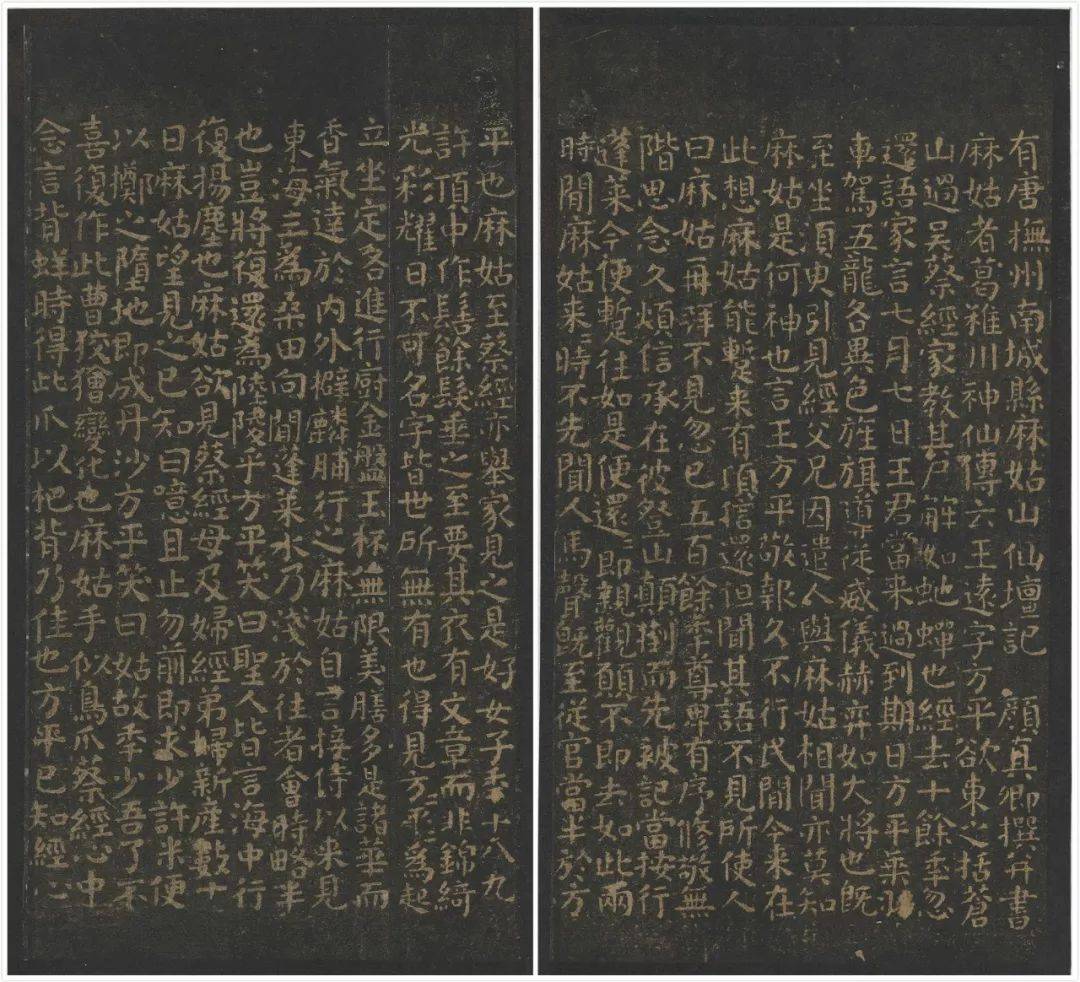 有唐撫州南城縣麻姑山仙壇記　顏真卿撰并書
麻姑者葛稚川神仙傳云王遠字方平欲東之括蒼
山過吳蔡經家教其尸解如虵蟬也經去十餘年忽
還語家言七月七日王君當來過到期日方平乘羽
車駕五龍各異色旌旗導從威儀赫弈如大將也既
至坐須臾引見經父兄因遣人與麻姑相聞亦莫知
麻姑是何神也言王方平敬報久不行民間今來在
此想麻姑能蹔來有頃信還但聞其語不見所使人
曰麻姑再拜不見忽已五百餘年尊卑有序修敬無
階思念久煩信承在彼登山顛倒而先被記當按行
蓬萊今便蹔往如是便還即親觀願不即去如此兩
時聞麻姑來時不先聞人馬聲既至從官當半於方
平也麻姑至蔡經亦舉家見之是好女子年十八九
許頂中作髻餘髮垂之至要其衣有文章而非錦綺
光彩耀日不可名字皆世所無有也得見方〻平〻為起
立坐定各進行廚金盤玉杯無限美膳多是諸華而
香氣達於內外擗麟脯行之麻姑自言接侍以來見
東海三為桑田向間蓬萊水乃淺於往者會時略半
也豈將復還為陸陵乎方平笑曰聖人皆言海中行
復揚塵也麻姑欲見蔡經母及婦經弟婦新產數十
日麻姑望見之已知曰噫且止勿前即求少許米便
以擲之墮地即成丹沙方平笑曰姑故年少吾了不
喜復作此曹狡獪變化也麻姑手似鳥爪蔡經心中
念言背蛘時得此爪以杷背乃佳也方平已知經心